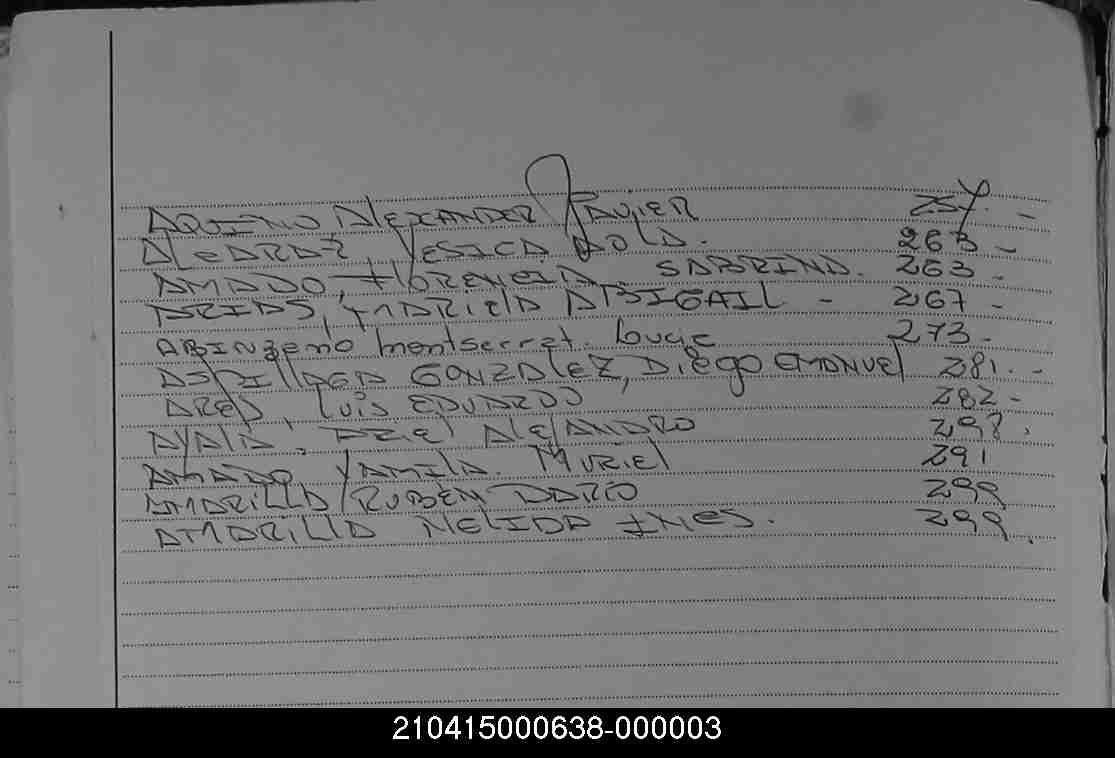 AQUINO, AlEXANDER JAVIER 257. -
YESICA 263 -
AMADO, FlORENCIA SABRINA. 263 -
ARIAS, MARIElA ABIGAIL - 267 -
ABINzeno montserrat. Lucie 273.-
GONZALEZ, Diego EMANUEl 281. -
Luis EDUARDO 282 -
AYAlA, AlEJANDRO 297.
AMADO YAMILA. MURIEl 291
AMARILLA RUBEN DARIO 299
AMARILLA NELIDA INES. 299.
210415000638-000003